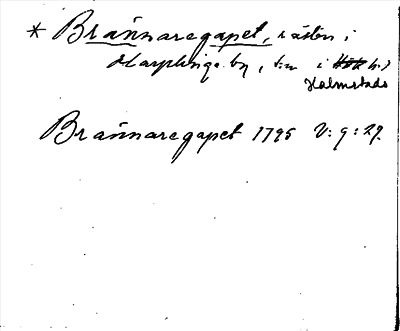 * Brännaregapet, i åsten i
Harplinge by, t.m i Hök h.)
Halmstads
Brännaregapet 1795 V: 9: 29.